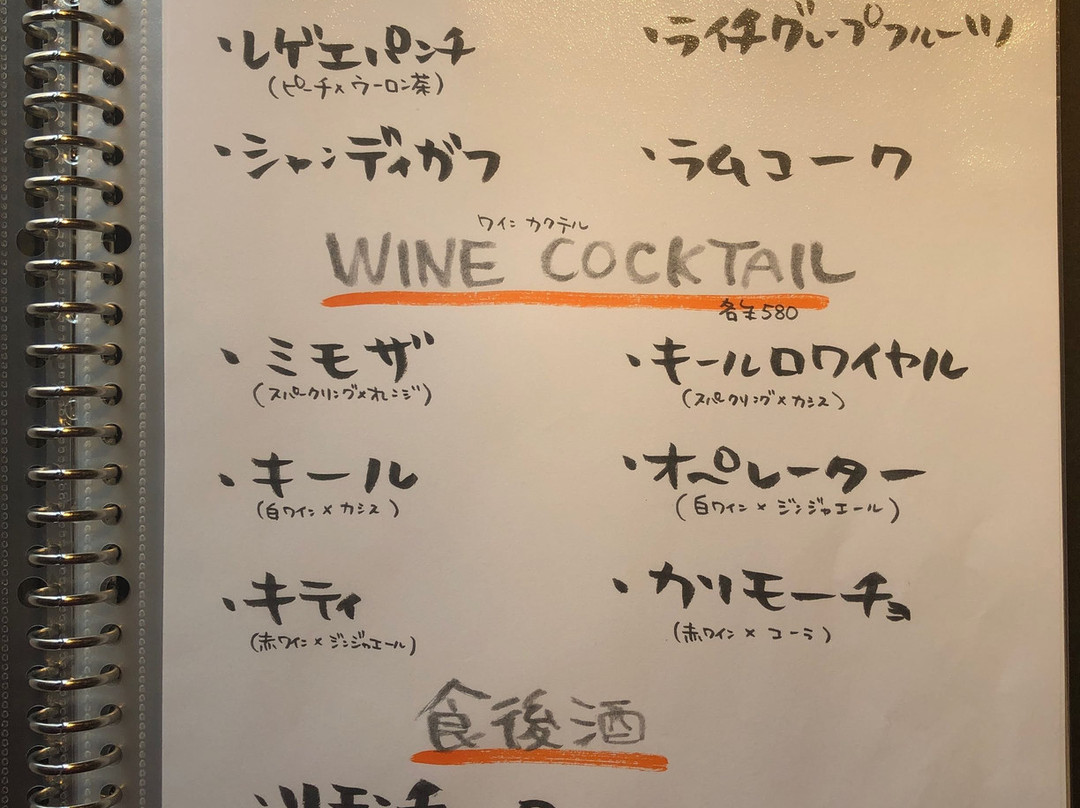 ・レゲエパンチ
(ピーチ×ウーロン茶)
・ライチグレープフルーツ
・シャンディガフ
・ラムコーク
ワインカクテル
WINE COCKTAIL
各￥580
・ミモザ
(スパークリング×オレンジ)
・キールロワイヤル
(スパークリング×カシス)
・キール
(白ワイン×カシス)
・オペレーター
(白ワイン×ジンジャエール)
・キティ
(赤ワイン×ジンジャエール)
・カリモーチョ
(赤ワイン×コーラ)
食後酒